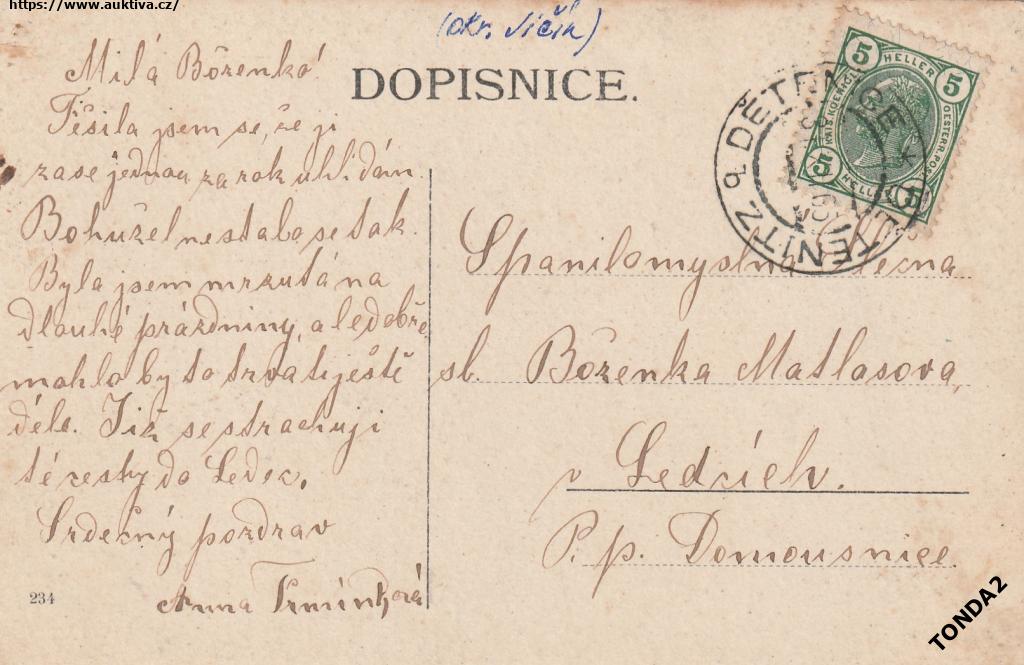 https://www.auktiva.cz/
(okr. Jičín)
DOPISNICE.
Milá Bôženko!
Těšila jsem se, že ji
zase jednou za rok uhlídám.
Bohužel nestalo se tak.
Byla jsem mrzutá na
dlouhé prázdniny, ale dobře
mohlo by to trvati ještě
déle. Již se strachuji
té cesty do Ledec.
Srdečný pozdrav
Anna
234
5 HELLER 5
KAIS. KOENIGL. OESTERR. POST
5 HELLER 5
DĚTENICE * DĚTENITZ
Spanilomyslná slečna
sl. Bôženka Matlasova,
v Ledcích.
P. p. Domousnice.
TONDA2